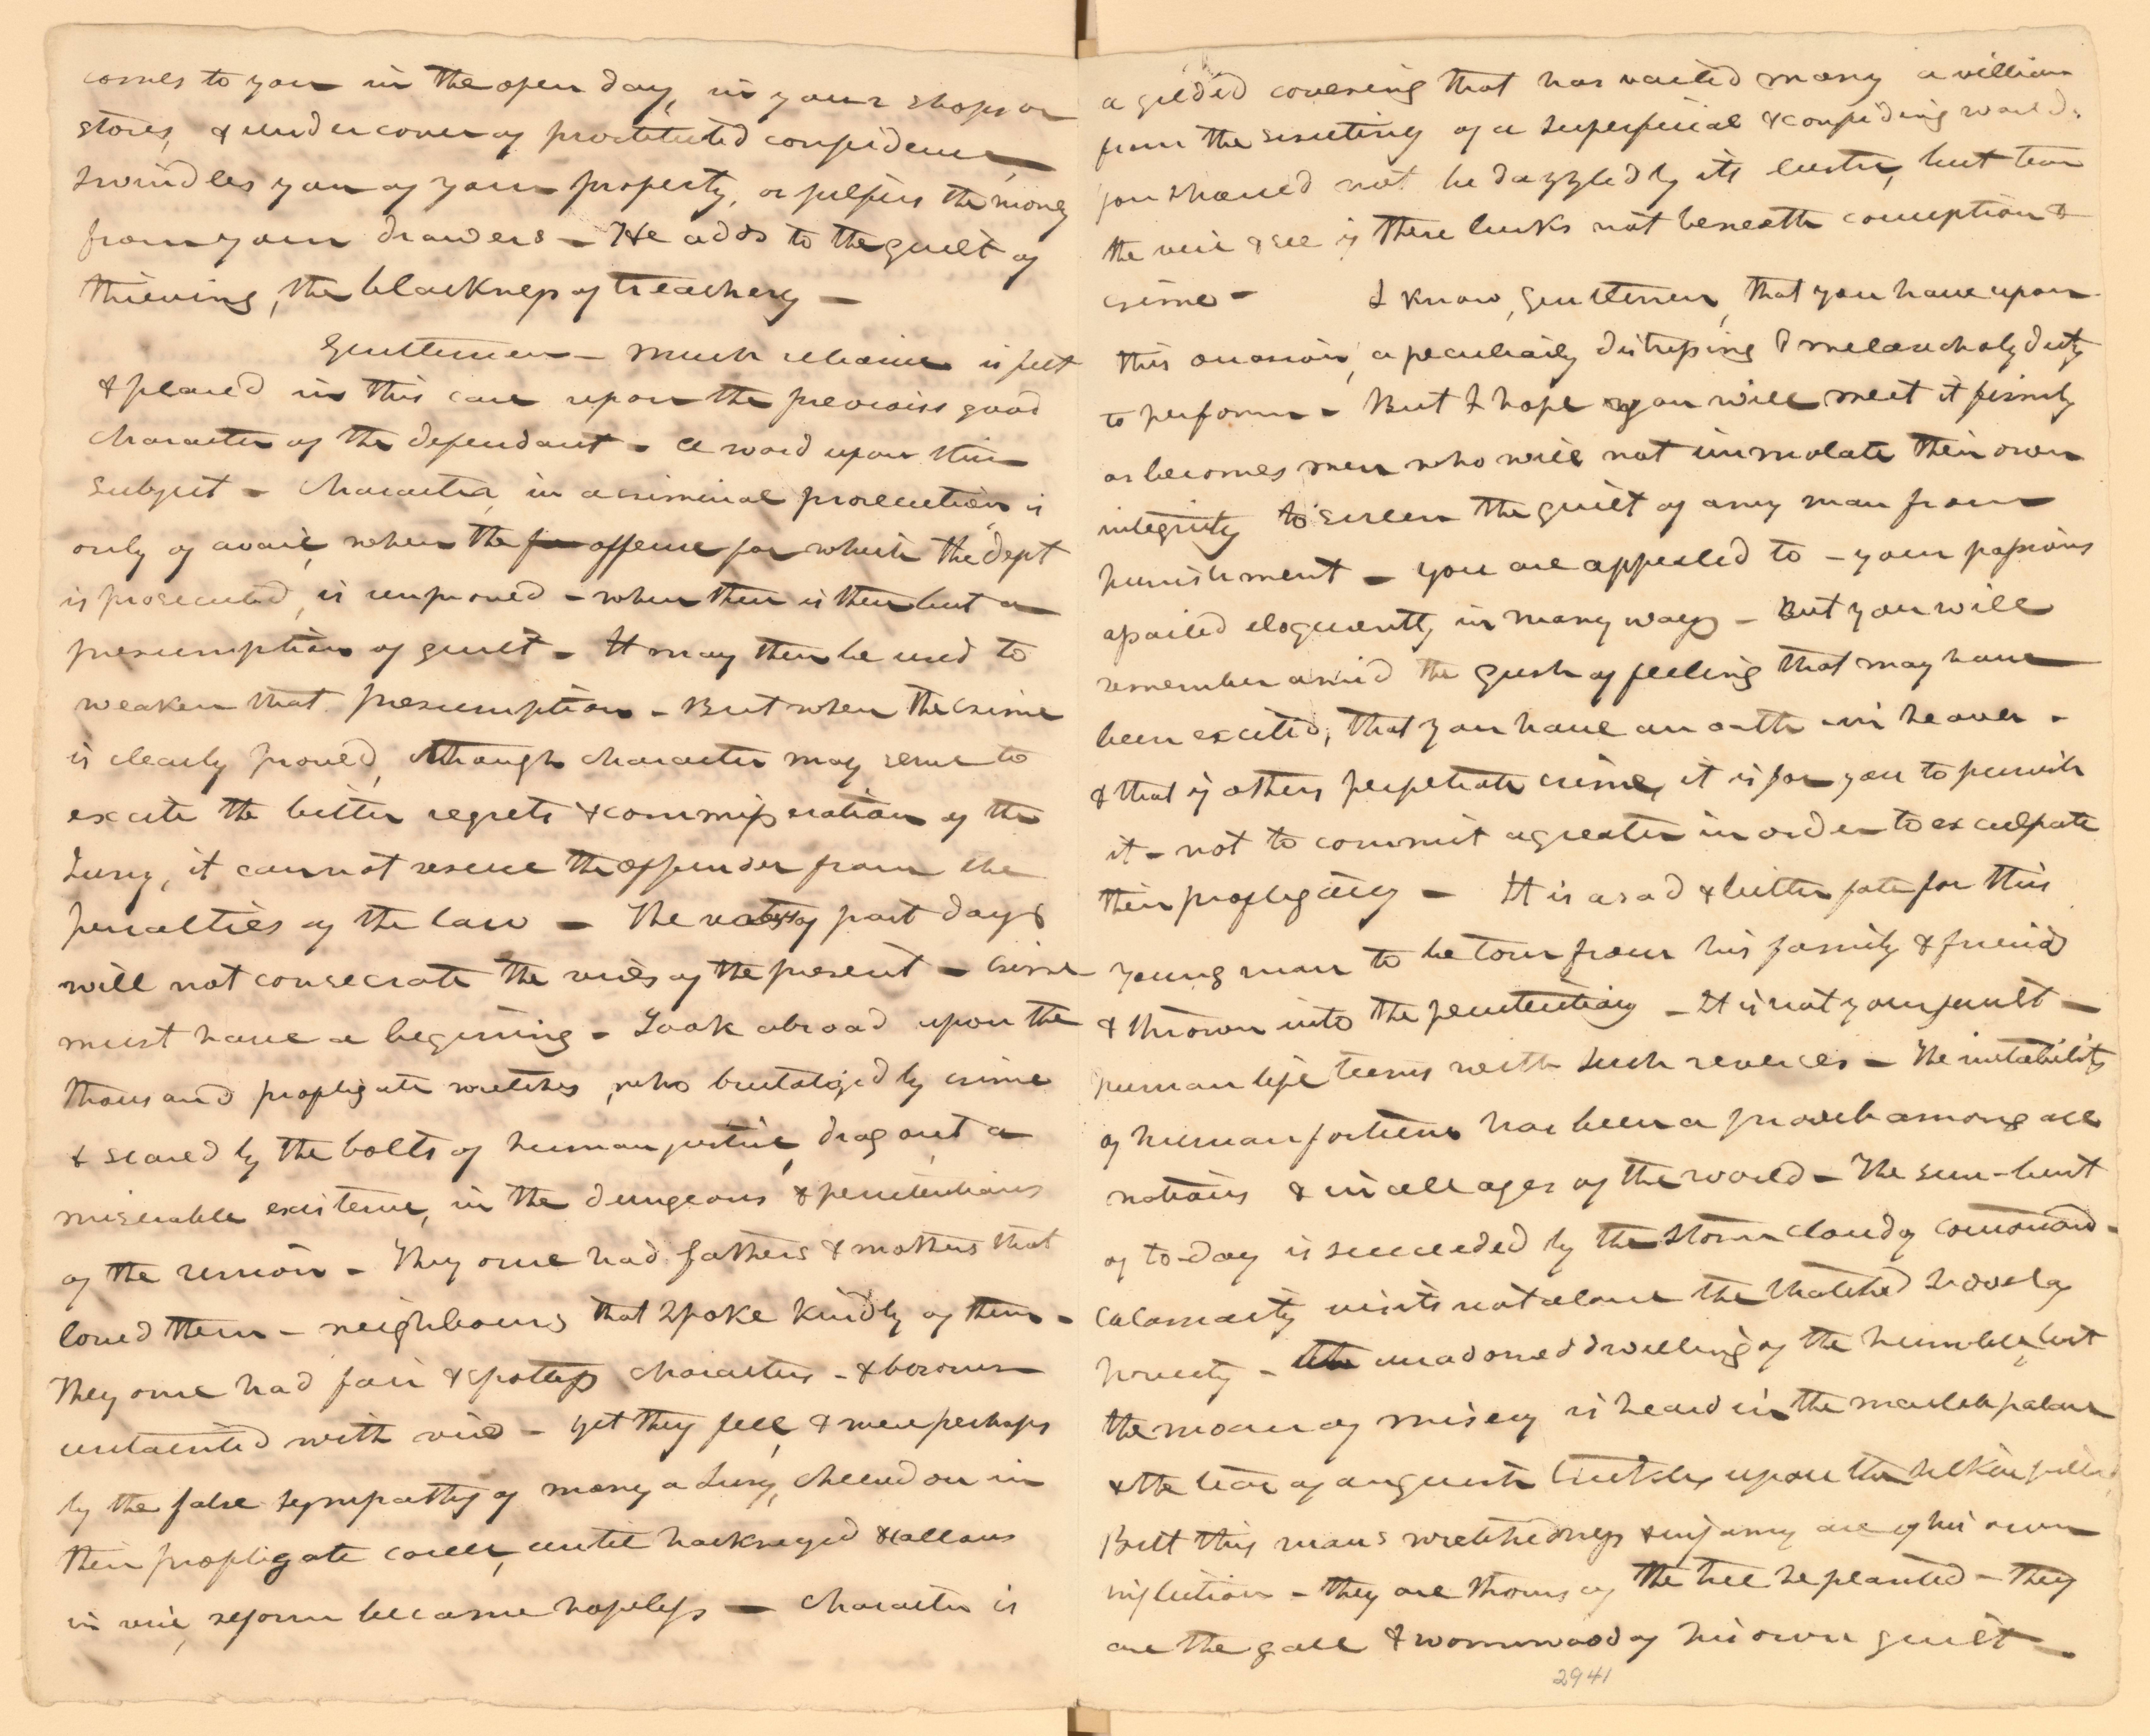 comes to you in the open day, in your shops or
stores, & under cover of prostituted confidence,
swindles you of your property, or pilfers the money
from your drawers – He adds to the guilt of
thieving, the blackness of treachery –
Gentlemen – much reliance is felt
& placed in this case upon the previous good
character of the defendant – a word upon this
subject – Character, in a criminal prosecution, is
only of avail, when the for offense for which the deft
is prosecuted, is unproved – when there is then but a
presumption of guilt – It may then be used to
weaken that presumption – But when the crime
is clearly proved, though character may serve to
excite the bitter regrets & commisseration of the
Jury, it cannot rescue the offender from the
penalties of the law – The of past days
will not consecrate the vices of the present – Crime
must have a begining – Look abroad upon the
thousand profligate wretches, who brutalized by crime
& scared by the bolts of human justice, drag out a
miserable existence, in the dungeons & penitentiaries
of the union – They once had fathers & mothers that
loved them – neighbours that spoke kindly of them –
They once had fair & spotless characters – & bosoms
untainted with vice – yet they fell, & were perhaps
by the false sympathy of many a Jury, cheered on in
their profligate career, until hackneyed & callous
in vice, reform became hopeless – Character is
a gilded covering that has vailed many a villian
from the scrutiny of a superficial & confiding world.
you should not be dazzled by its lustre, but tear
the veil & see if there lurks not beneath corruption &
crime – I know, gentlemen, that you have upon
this occasion, a peculiarly distressing & melancholy duty
to perform – But I hope you will meet it firmly
as becomes men who will not immolate their own
integrity to screen the guilt of any man from
punishment – you are appealed to – your passions
assailed eloquently in many ways – But you will
remember amid the gush of feeling that may have
been excited, that you have an oath in heaven –
& that if others perpetrate crime, it is for you to punish
it – not to commit a greater in order to exculpate
their profligacy – It is a sad & bitter fate for this
young man to be torn from his family & friends
& thrown into the penitentiary – It is not your fault –
human life teems with such reverces – The mutability
of human fortune has been a proverb among all
nations & in all ages of the world – The sun-burst
of to-day is succeeded by the storm cloud of tomorrow –
Calamity visits not alone the thatched hovel of
poverty – the unadorned dwelling of the humble, but
the moan of misery is heard in the marble palace
& the tear of anguish trickles upon the silken pillow,
But this mans wretchedness & infamy are of his own
infliction – they are thorns of the tree he planted – they
are the gall & wormwood of his own guilt –
2941